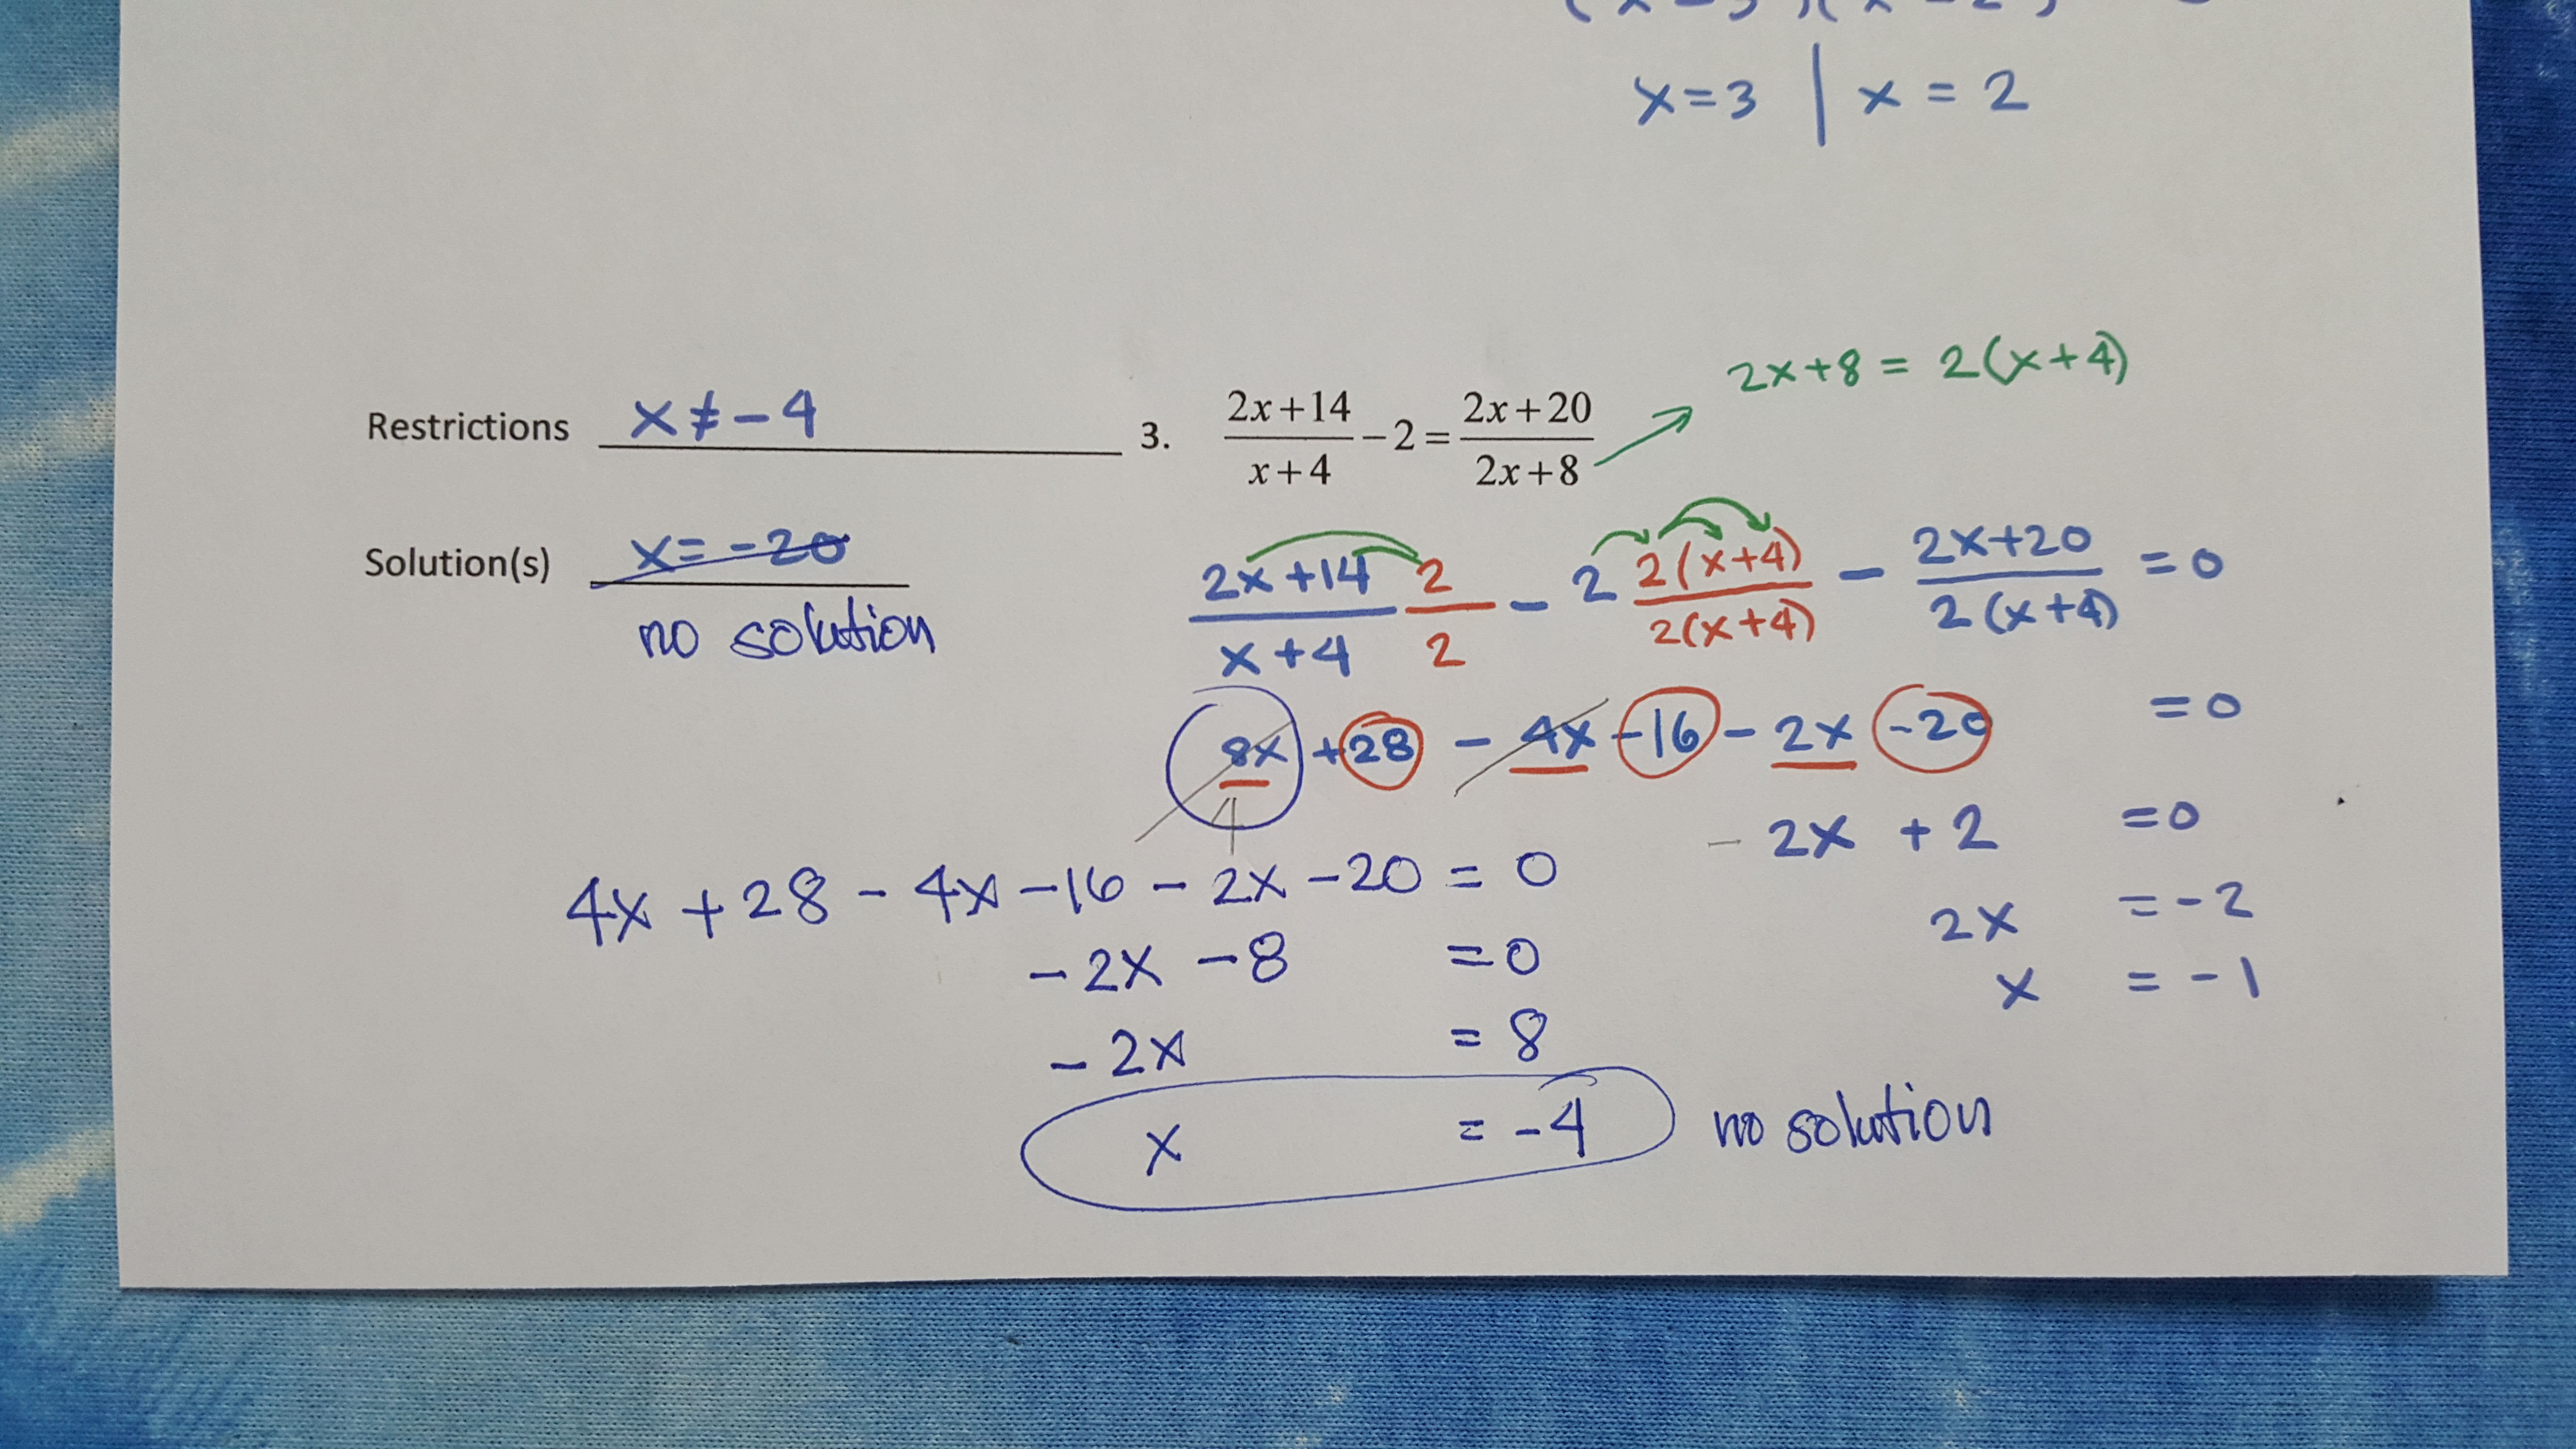 x=3 | x = 2
2x+8 = 2(x+4)
Restrictions x ≠ -4
3. (2x+14)/(x+4) - 2 = (2x+20)/(2x+8)
Solution(s) x = -20
no solution
(2x+14)/(x+4) 2/2 - 2 2(x+4)/2(x+4) - (2x+20)/2(x+4) = 0
8x + 28 - 4x - 16 - 2x - 20 = 0
- 2x + 2 = 0
2x = -2
x = -1
4x + 28 - 4x - 16 - 2x - 20 = 0
- 2x - 8 = 0
- 2x = 8
x = -4 no solution